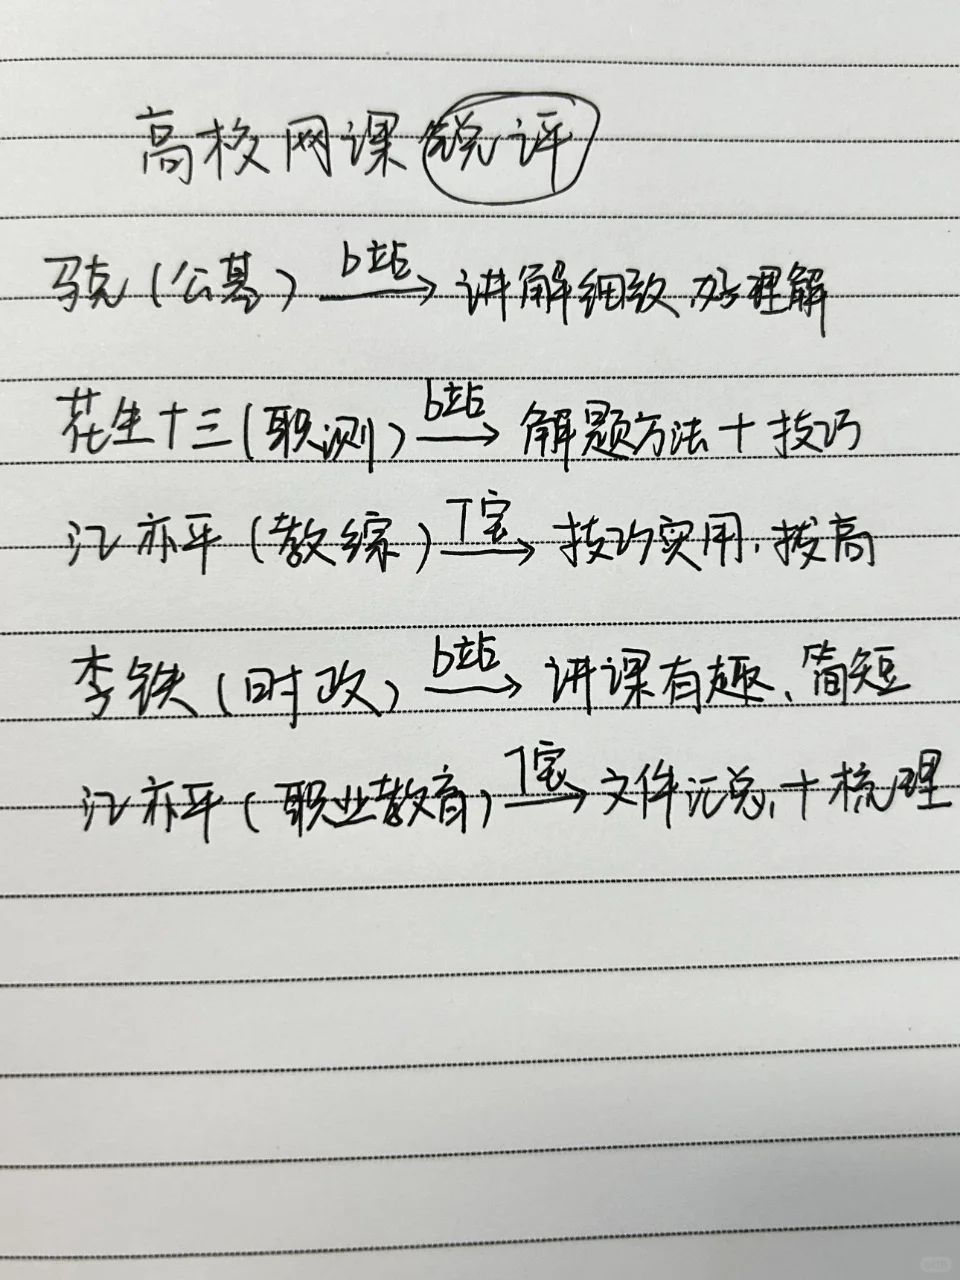 高校网课锐评
马克(公基) b站→ 讲解细致、好理解
花生十三(职测) b站→ 解题方法+技巧
江亦平(教综) T宝→ 技巧实用、拔高
李铁(时政) b站→ 讲课有趣、简短
江亦平(职业教育) T宝→ 文件汇总、+梳理